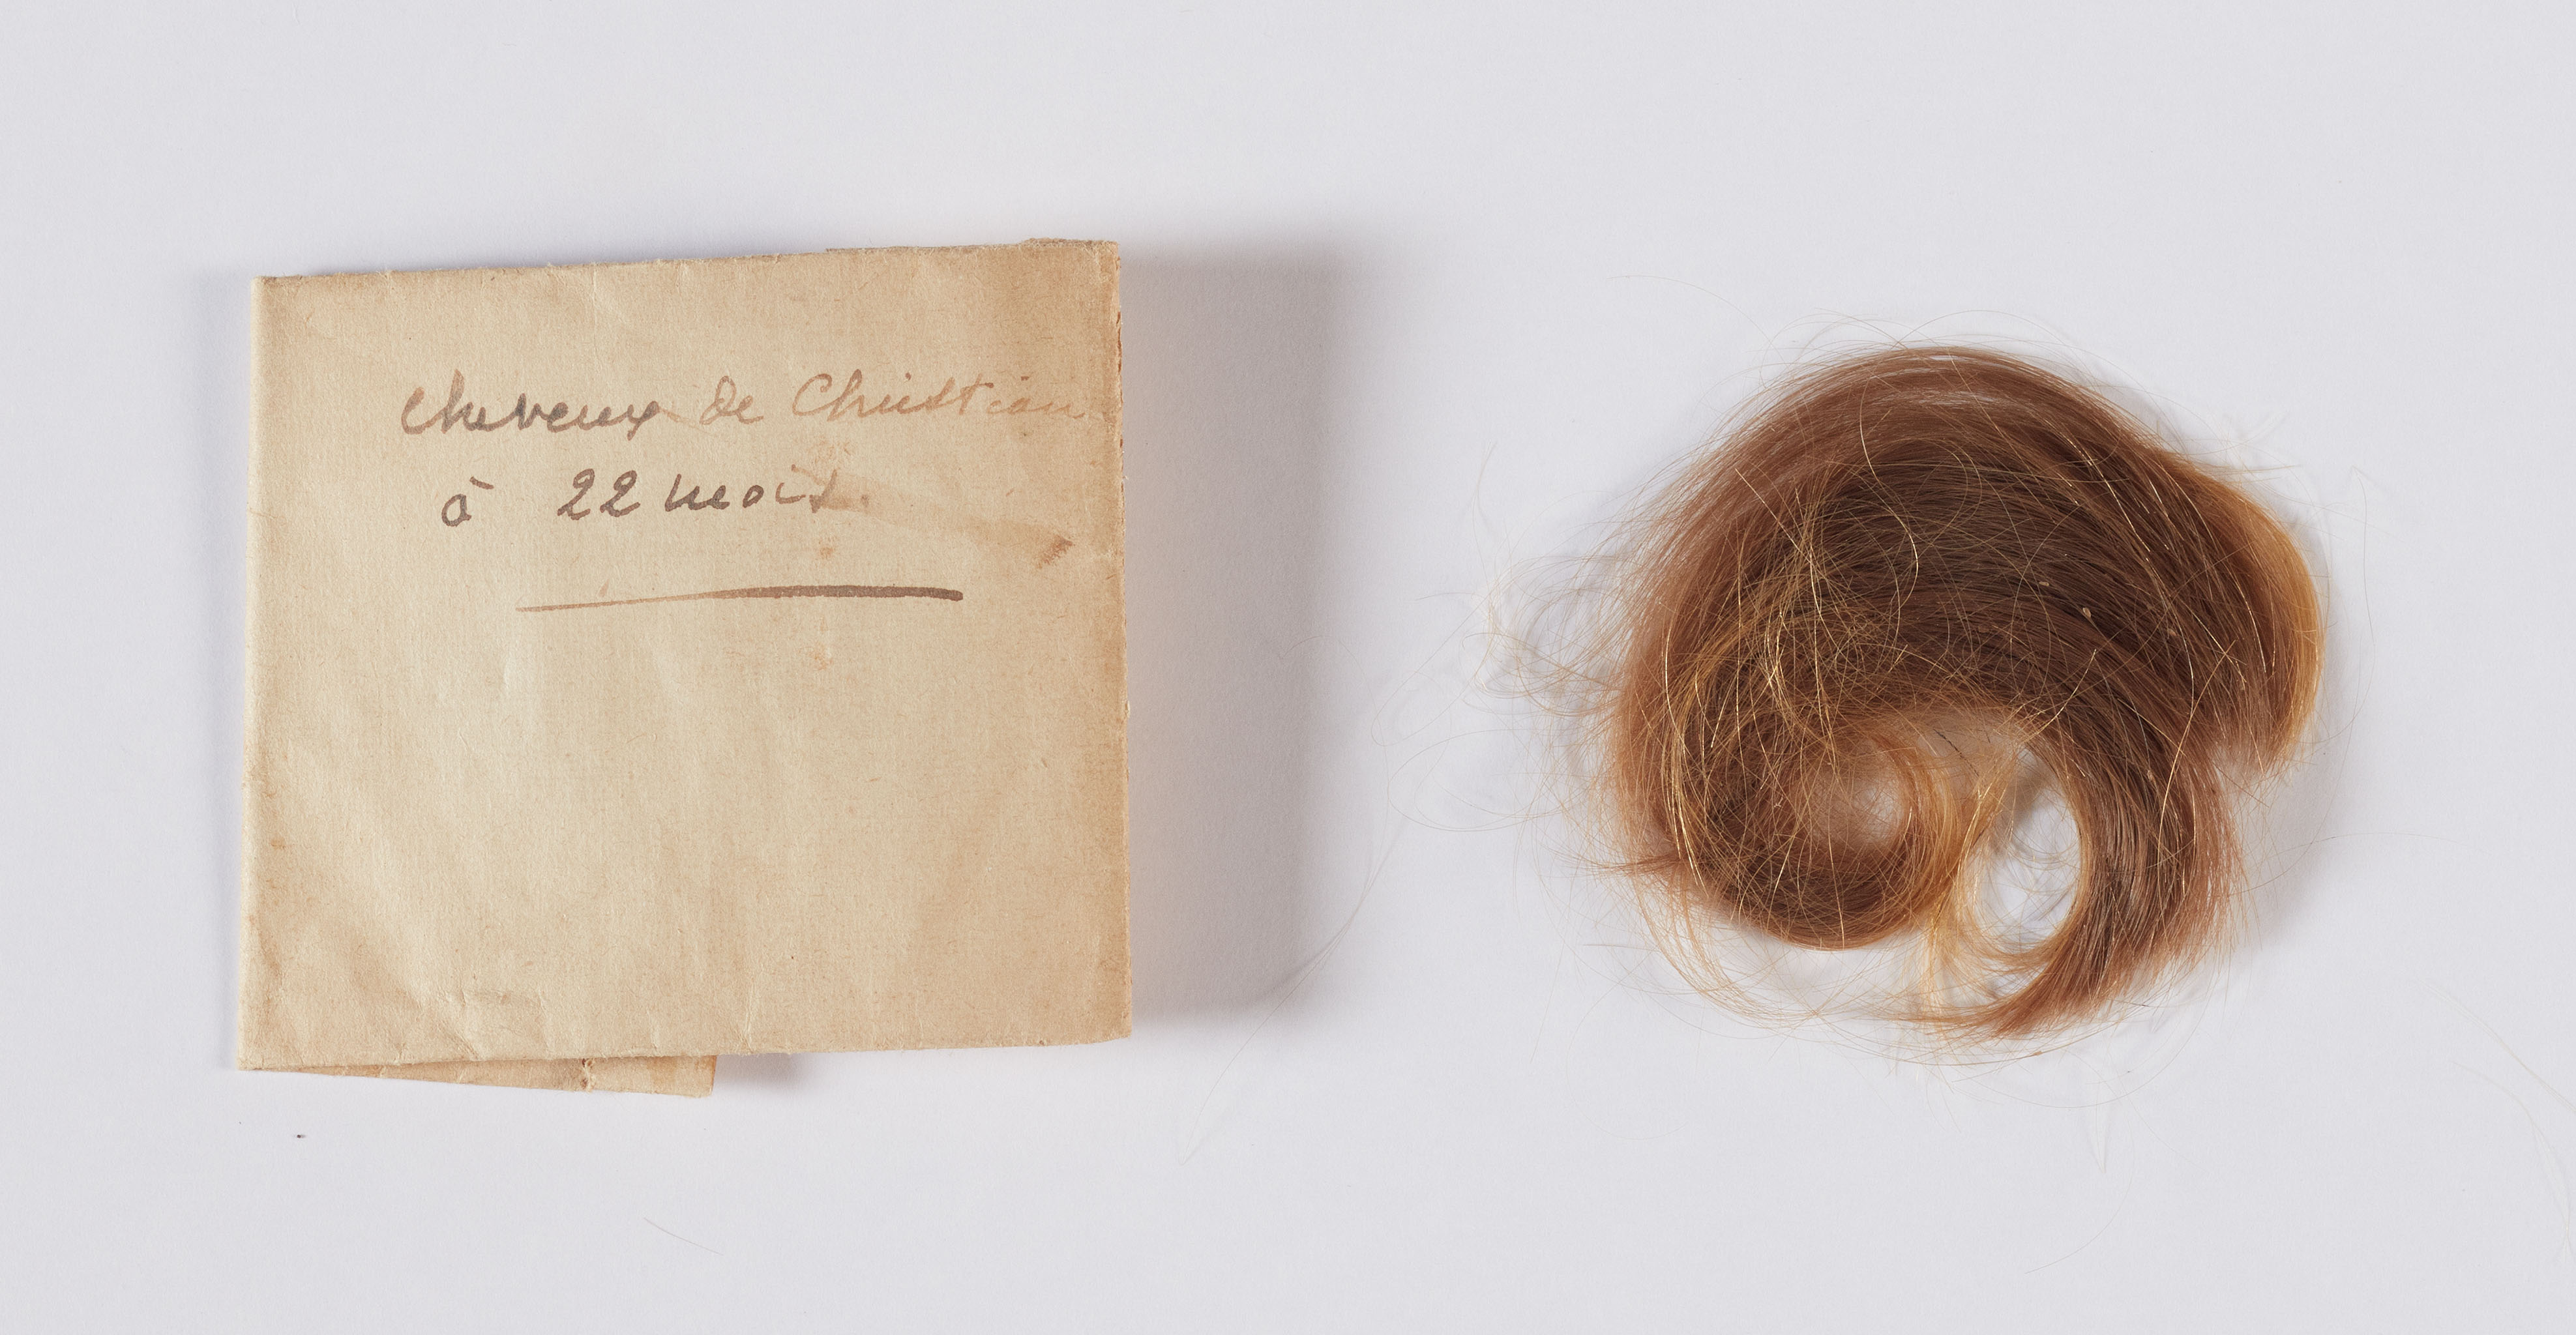 Cheveux de Christian
à 22 mois.